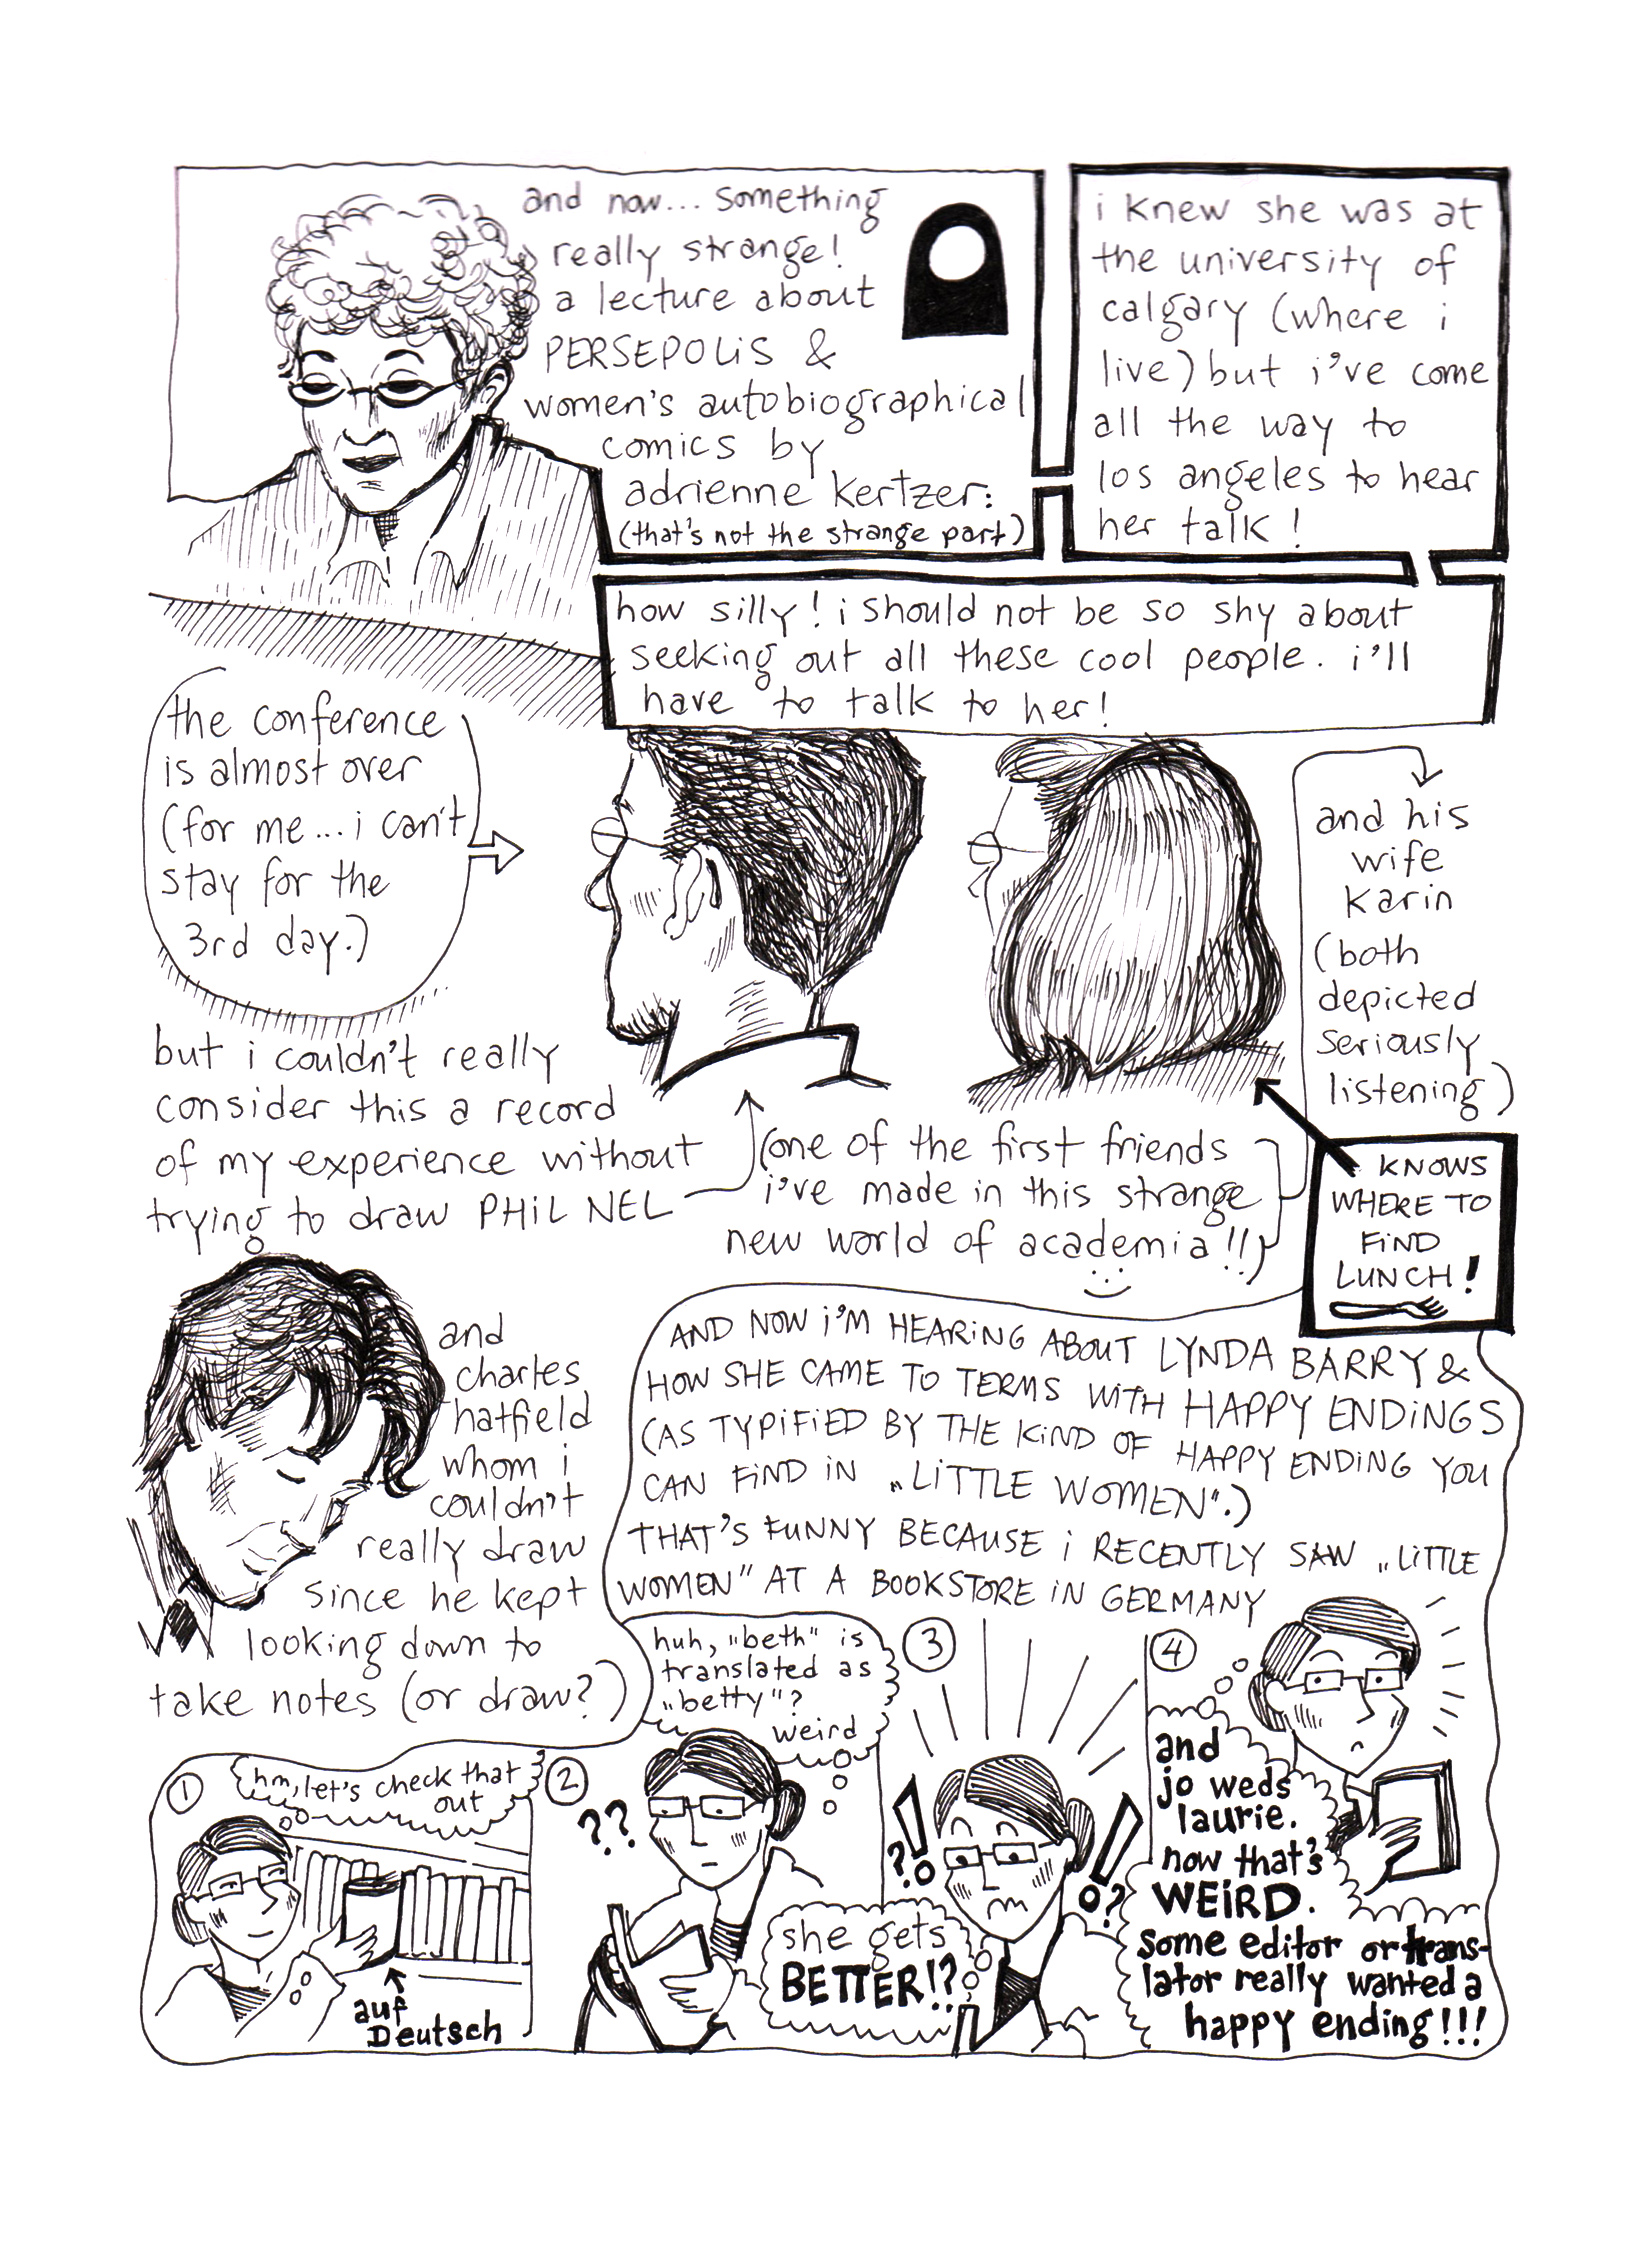 and now... something
really strange!
a lecture about
PERSEPOLIS &
women's autobiographical
comics by
adrienne kertzer:
(that's not the strange part)
i knew she was at
the university of
calgary (where i
live) but i've come
all the way to
los angeles to hear
her talk!
how silly! i should not be so shy about
seeking out all these cool people. i'll
have to talk to her!
the conference
is almost over
(for me... i can't
stay for the
3rd day.)
but i couldn't really
consider this a record
of my experience without
trying to draw PHIL NEL
(one of the first friends
i've made in this strange
new world of academia!!)
and his
wife
karin
(both
depicted
seriously
listening)
KNOWS
WHERE TO
FIND
LUNCH!
and
charles
hatfield
whom i
couldn't
really draw
since he kept
looking down to
take notes (or draw?)
AND NOW i'M HEARING ABOUT LYNDA BARRY &
HOW SHE CAME TO TERMS WITH HAPPY ENDINGS
(AS TYPIFIED BY THE KIND OF HAPPY ENDING YOU
CAN FIND IN „LITTLE WOMEN".)
THAT'S FUNNY BECAUSE i RECENTLY SAW „LITTLE
WOMEN" AT A BOOKSTORE IN GERMANY
1
hm, let's check that
out
auf
Deutsch
2
huh, „beth" is
translated as
„betty"?
weird
??
3
she gets
BETTER!?
?!
!?
4
and
jo weds
laurie.
now that's
WEIRD.
some editor or trans-
lator really wanted a
happy ending!!!